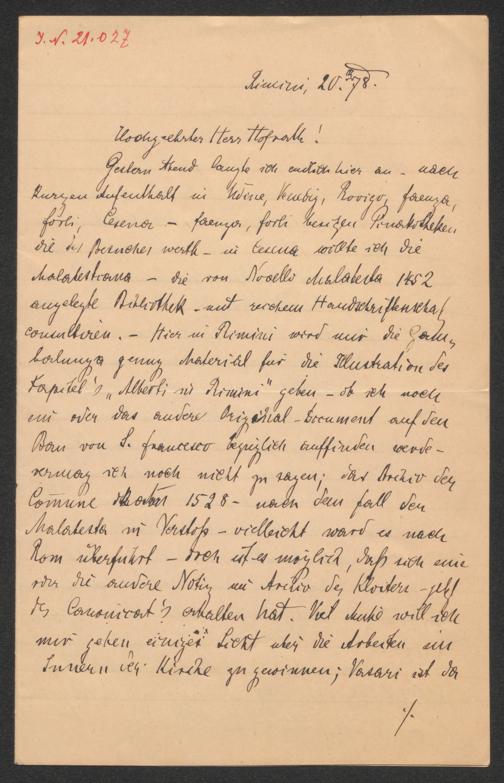 I. N. 21.027
Rimini, 20. 78.
Hochgeehrter Herr Hofrath!
Gestern Abend langte ich endlich hier an – nach
kurzem Aufenthalt in Udine, Venedig, Rovigo, Faenza,
Forli, Cesena – Faenza, Forli besizen Pinakotheken
die des Besuches werth – in Cesena wollte ich die
Malatestiana – die von Novello Malatesta 1452
angelegte Bibliothek – mit reichem Handschriftenschaz
consultiren. – Hier in Rimini wird mir die
genug Material für die Illustration des
Kapitel's „Alberti in Rimini" geben – ob ich noch
ein oder das andere Original-Document auf den
Bau von S. Francesco bezüglich auffinden werde –
vermag ich noch nicht zu sagen; das Archiv der
Comune 1528 – nach dem Fall der
Malatesta in Verstoß – vielleicht ward es nach
Rom überführt – doch ist es möglich, daß sich eine
oder die andere Notiz im Archiv des Klosters – jezt
des Canonicat's erhalten hat. Viel Mühe will ich
mir geben einiges Licht über die Arbeiten im
Innern der Kirche zu gewinnen; Vasari ist da
./.